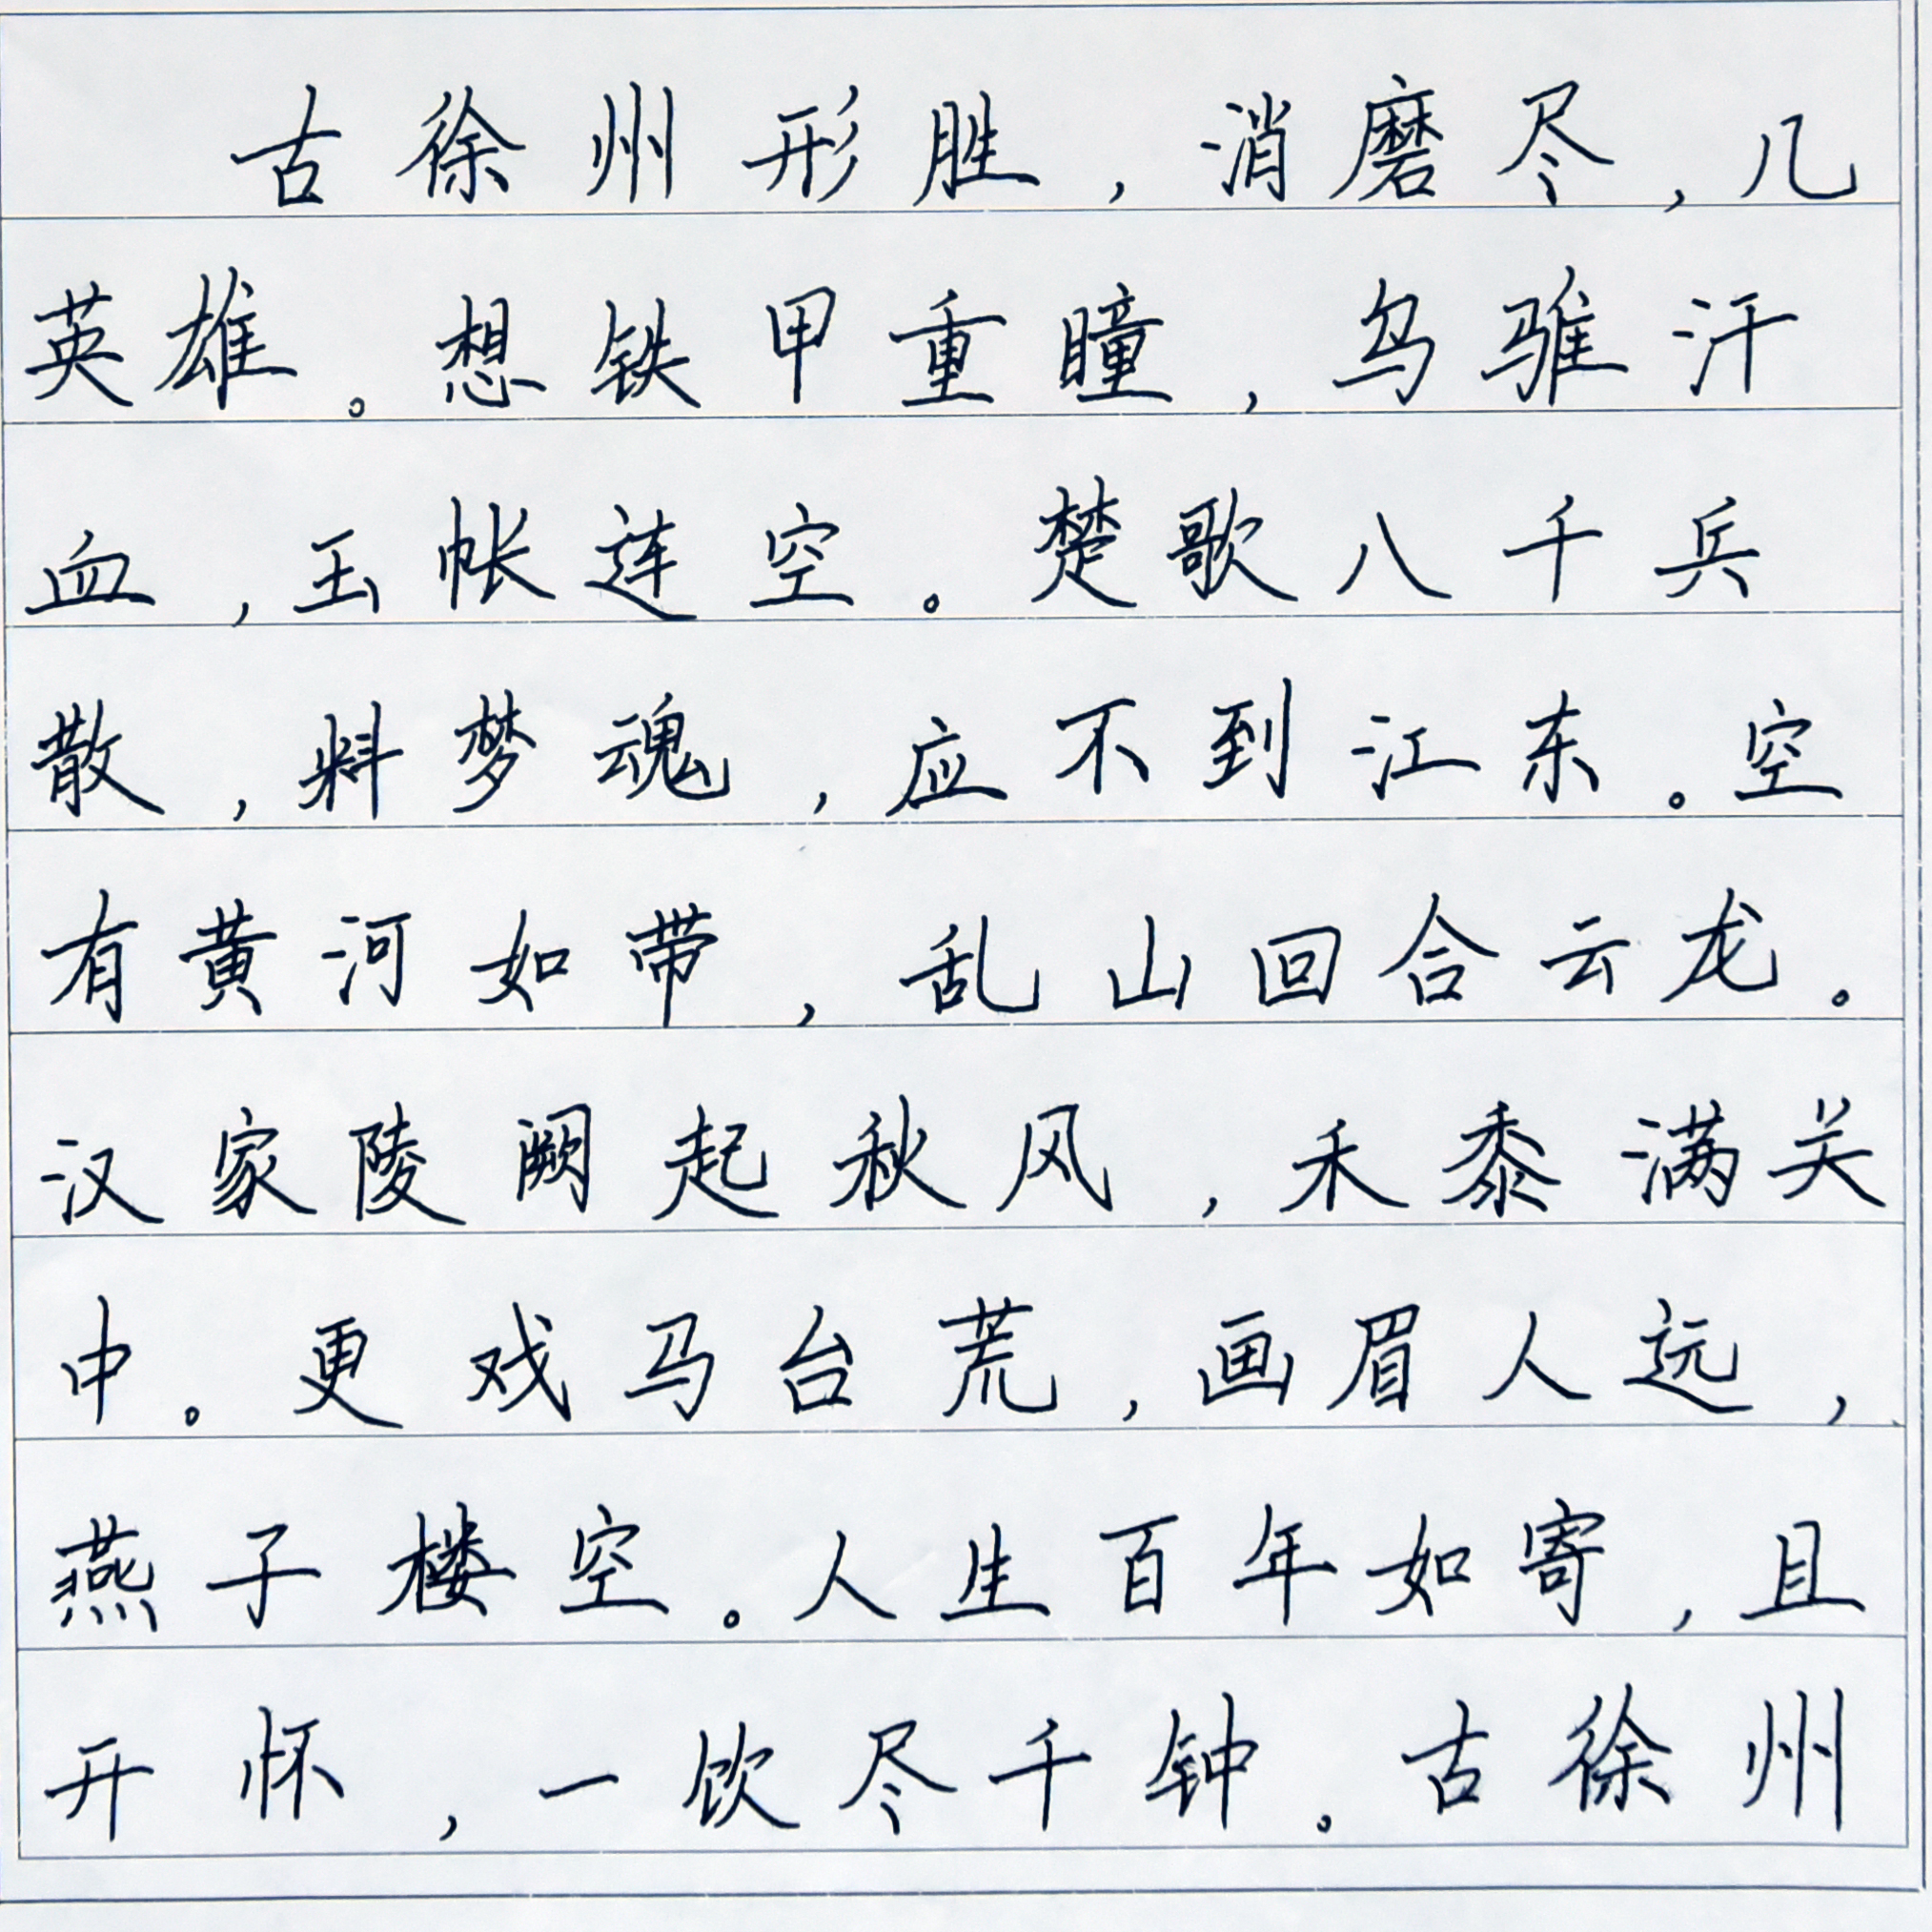 古徐州形胜，消磨尽，几
英雄。想铁甲重瞳，乌骓汗
血，玉帐连空。楚歌八千兵
散，料梦魂，应不到江东。空
有黄河如带，乱山回合云龙。
汉家陵阙起秋风，禾黍满关
中。更戏马台荒，画眉人远，
燕子楼空。人生百年如寄，且
开怀，一饮尽千钟。古徐州